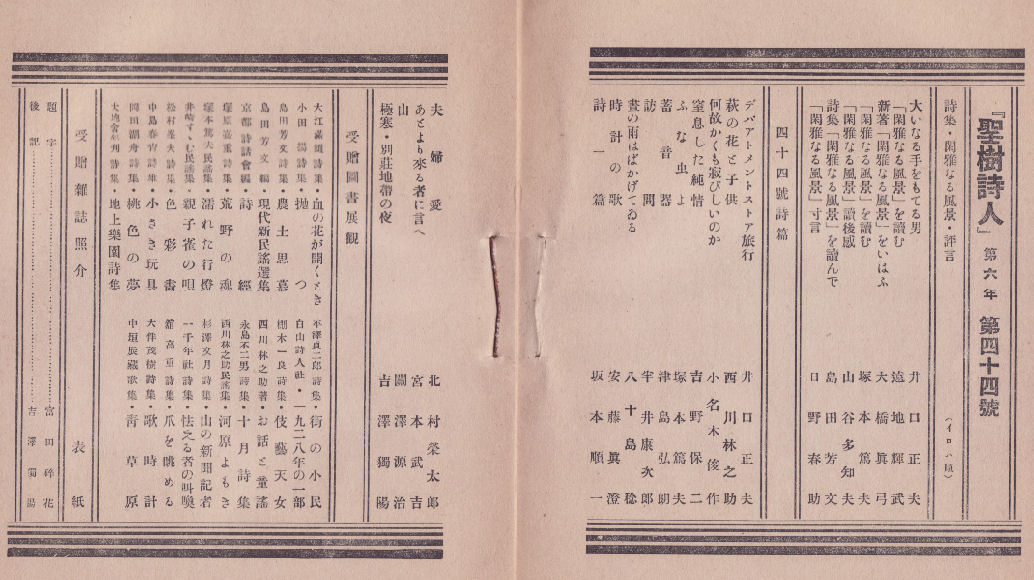 『聖樹詩人』第六年 第四十四號
詩集・閑雅なる風景・評言 (イロハ順)
大いなる手をもてる男 井口正夫
「閑雅なる風景」を讀む 遠地輝武
新著「閑雅なる風景」をいはふ 大橋眞弓
「閑雅なる風景」を讀む 塚本篤夫
「閑雅なる風景」讀後感 山谷多知夫
詩集「閑雅なる風景」を讀んで 島田芳文
「閑雅なる風景」寸言 日野春助
四十四號詩篇
デパアトメントストア旅行 井口正夫
萩の花と子供 西川林之助
何故かくも寂びしいのか 小名木俊作
窒息した純情 吉野保二
ふな虫よ 塚本篤夫
蓄音器 津島弘朗
訪問 宇井康次郎
晝の雨はばかげてゐる 八十島稔
時計の歌 安藤眞澄
詩一篇 坂本順一
夫婦愛 北村榮太郎
あとより來る者に言へ 宮本武吉
山 關澤源治
極寒・別莊地帶の夜 吉澤獨陽
受贈圖書展觀
大江滿雄詩集・血の花が開くとき
小田揚詩集・拋つ
島田芳文詩集・農土思慕
島田芳文編・現代新民謠選集
京都詩話會編・詩經
塚原嘉重詩集・荒野の魂
塚本篤夫民謠集・濡れた行燈
井崎すゝむ民謠集・親子雀の唄
松村産夫詩集・色彩書
中島春宵詩集・小さき玩具
岡田湖舟詩集・桃色の夢
大地會年刊詩集・地上樂園詩集
平澤貞二郎詩集・街の小民
白山詩人社・一九二八年の一部
棚木一良詩集・伎藝天女
西川林之助著・お話と童謠
永島不二男詩集・十月詩集
西川林之助民謠集・河原よもき
杉澤文月詩集・山の新聞記者
一千年社詩集・怯える者の叫喚
舘高重詩集・爪を眺める
大伴茂樹詩集・歌時計
中垣辰藏歌集・靑草原
受贈雜誌照介
表紙
題字 宮田碎花
後記 吉澤獨陽